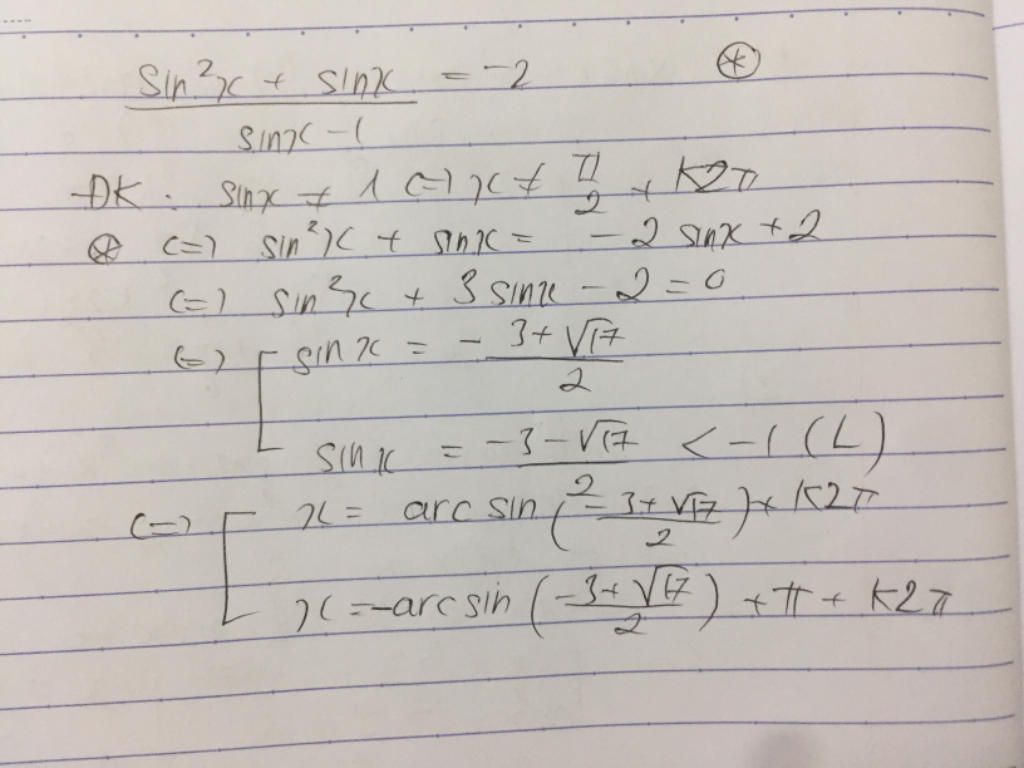 sin²x + sinx / sinx - 1 = -2 ⊛
ĐK : sinx ≠ 1 (=) x ≠ π/2 + k2π
⊛ (=) sin²x + sinx = -2 sinx + 2
(=) sin²x + 3 sinx - 2 = 0
(=) [ sinx = - 3+√17 / 2
sinx = -3-√17 / 2 < -1 (L)
(=) [ x = arc sin (-3+√17 / 2) + k2π
x = -arc sin (-3+√17 / 2) + π + k2π